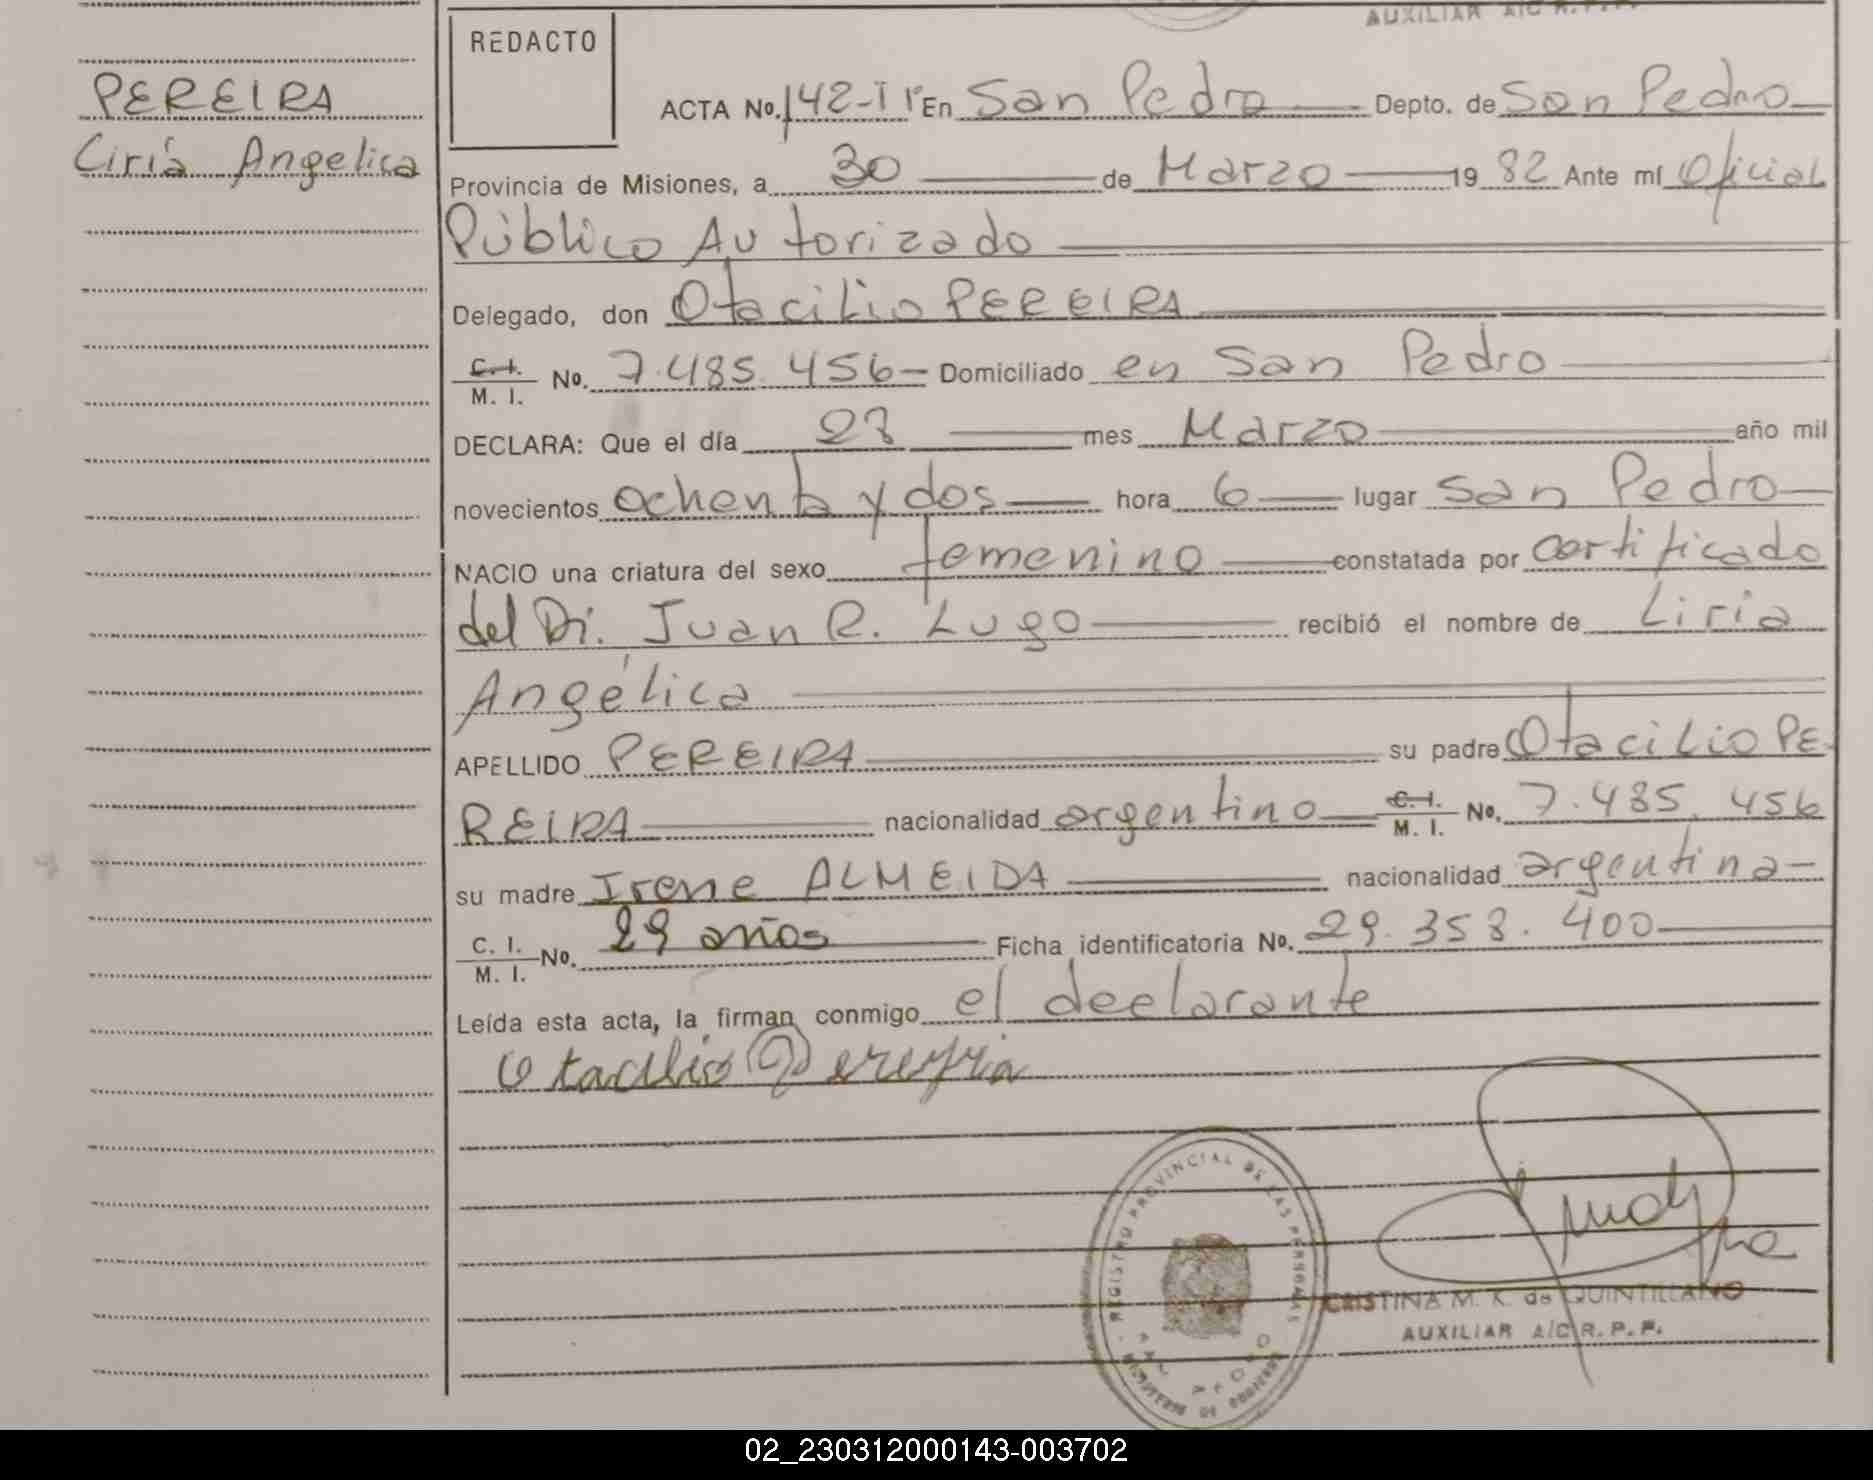 AUXILIAR A/C R.P.P.
REDACTO
PEREIRA
Ciria Angelica
ACTA No. 142-Iº En San Pedro Depto. de San Pedro
Provincia de Misiones, a 30 de Marzo 19 82 Ante mí Oficial
Público Autorizado
Delegado, don Otacilio PEREIRA
C.I. M.I. No. 7.485.456- Domiciliado en San Pedro
DECLARA: Que el día 23 mes Marzo año mil
novecientos ochenta y dos hora 6 lugar San Pedro
NACIO una criatura del sexo femenino constatada por certificado
del Dr. Juan R. Lugo recibió el nombre de Liria
Angélica
APELLIDO PEREIRA su padre Otacilio PE-
REIRA nacionalidad argentino C.I. M.I. No. 7.485.456
su madre Irene ALMEIDA nacionalidad argentina-
C.I. M.I. No. 29 años Ficha identificatoria No. 29.358.400
Leída esta acta, la firman conmigo el declarante
Otacilio Pereyria
REGISTRO PROVINCIAL DE LAS PERSONAS
MINISTERIO DE GOBIERNO
CRISTINA M. K. de QUINTILLANO
AUXILIAR A/C R.P.P.
02_230312000143-003702